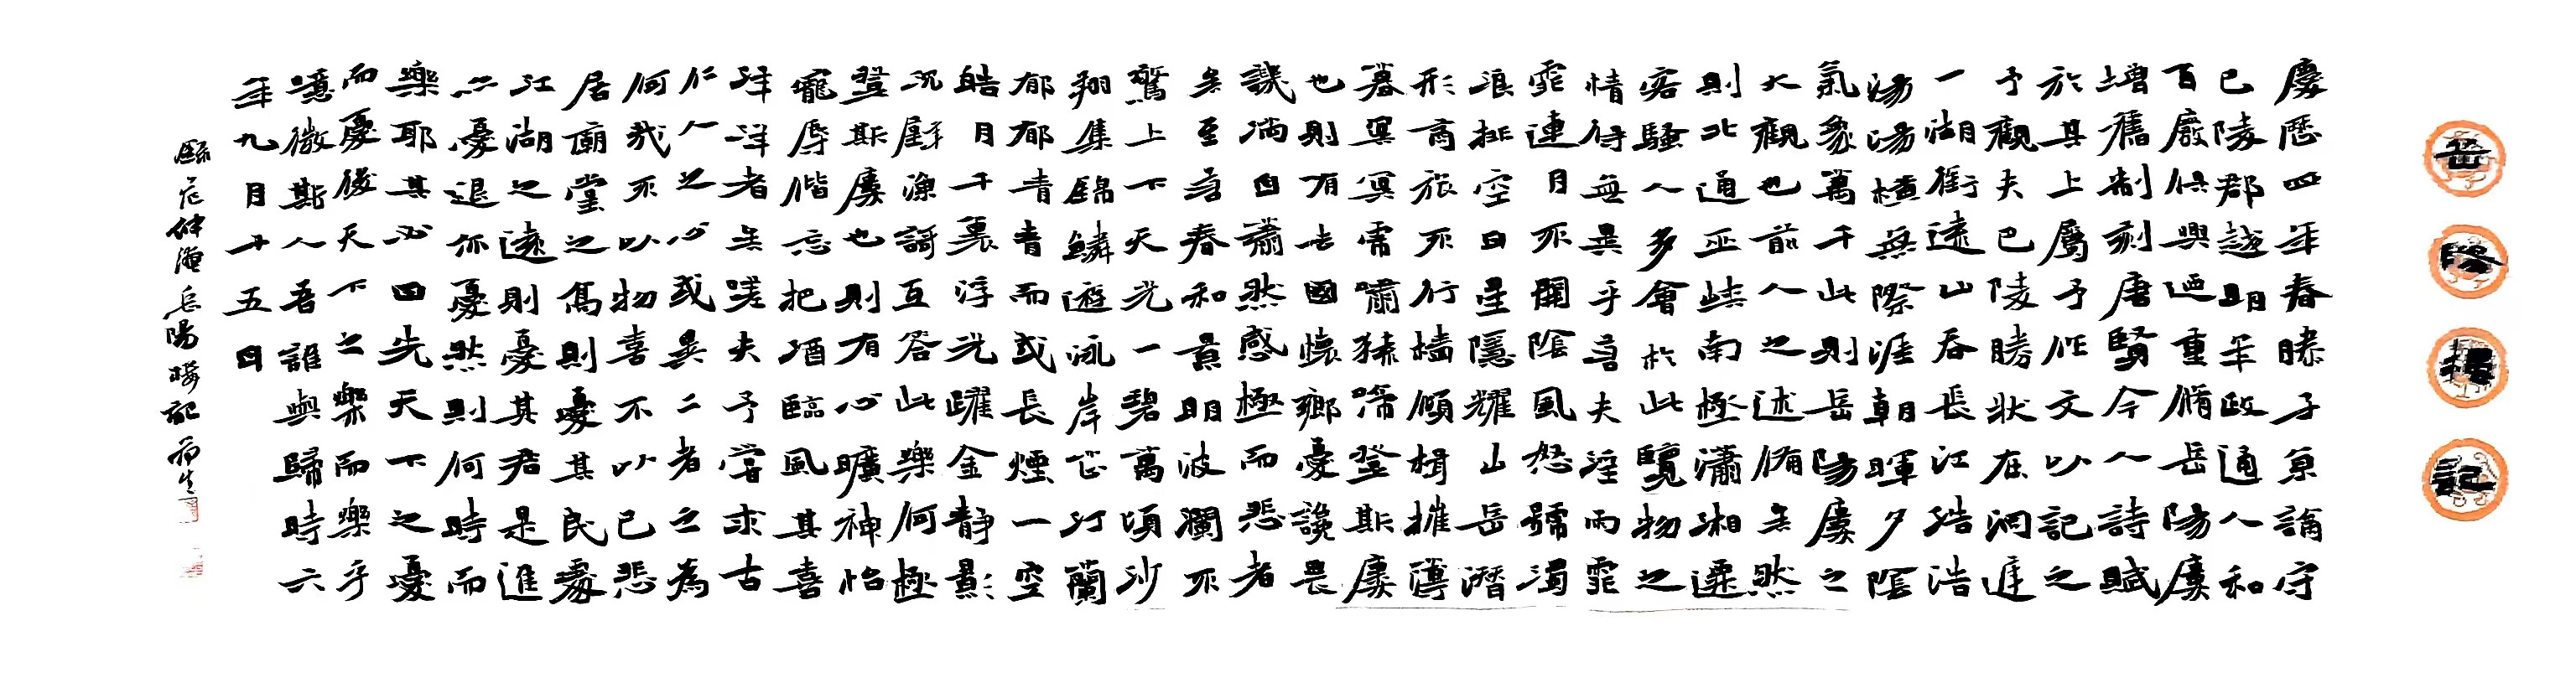 岳陽樓記
慶歷四年春滕子京謫守
巴陵郡越明年政通人和
百廢俱興迺重脩岳陽樓
增舊制刻唐賢今人詩賦
於其上屬予作文以記之
予觀夫巴陵勝狀在洞庭
一湖銜遠山吞長江浩浩
湯湯橫無際涯朝暉夕陰
氣象萬千此則岳陽樓之
大觀也前人之述備矣然
則北通巫峽南極瀟湘遷
客騷人多會於此覽物之
情得無異乎若夫淫雨霏
霏連月不開陰風怒號濁
浪排空日星隱耀山岳潛
形商旅不行檣傾楫摧薄
暮冥冥虎嘯猿啼登斯樓
也則有去國懷鄉憂讒畏
譏滿目蕭然感極而悲者
矣至若春和景明波瀾不
驚上下天光一碧萬頃沙
翔集錦鱗遊泳岸芷汀蘭
郁郁青青而或長煙一空
皓月千里浮光躍金靜影
沉璧漁歌互答此樂何極
登斯樓也則有心曠神怡
寵辱偕忘把酒臨風其喜
洋洋者矣嗟夫予嘗求古
仁人之心或異二者之為
何哉不以物喜不以己悲
居廟堂之高則憂其民處
江湖之遠則憂其君是進
亦憂退亦憂然則何時而
樂耶其必曰先天下之憂
而憂後天下之樂而樂乎
噫微斯人吾誰與歸時六
年九月十五日
范仲淹岳陽樓記